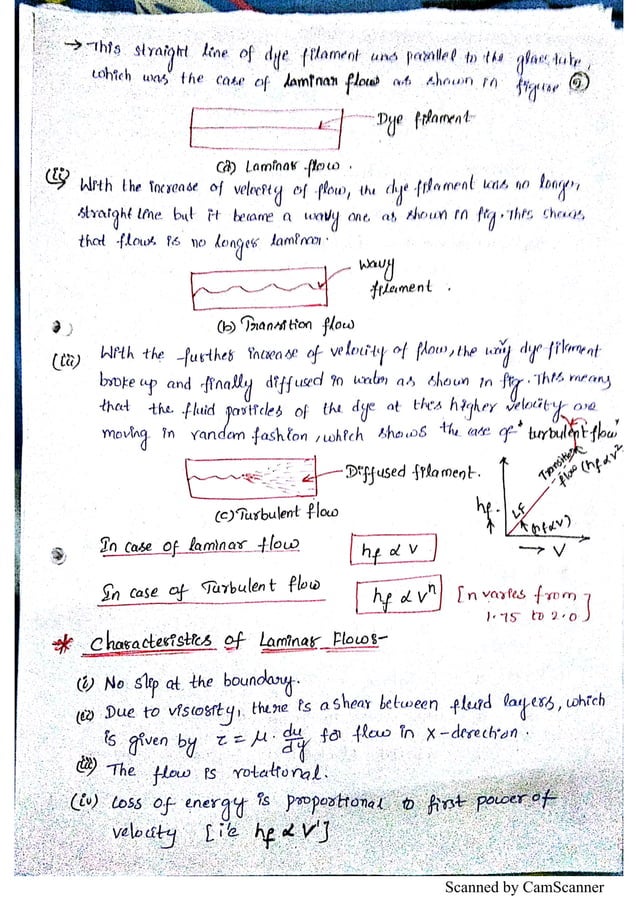 → This straight line of dye filament was parallel to the glass tube,
which was the case of laminar flow as shown in figure
Dye filament
(a) Laminar flow.
(ii) With the increase of velocity of flow, the dye filament was no longer,
straight line but it became a wavy one as shown in fig. This shows
that flow is no longer laminar.
Wavy
filament.
(b) Transition flow
(iii) With the further increase of velocity of flow, the wavy dye filament
broke up and finally diffused in water as shown in fig. This means
that the fluid particles of the dye at this higher velocity are
moving in random fashion, which shows the case of "turbulent flow"
Diffused filament.
(c) Turbulent flow
Transition
flow (hf ∝ V²
hf
LF
(hf ∝ V)
→ V
In case of laminar flow hf ∝ V
In case of Turbulent flow hf ∝ Vⁿ [n varies from
1.75 to 2.0]
* Characteristics of Laminar Flow:-
(i) No slip at the boundary.
(ii) Due to viscosity, there is a shear between fluid layers, which
is given by τ = μ · du/dy for flow in X-derection.
(iii) The flow is rotational.
(iv) Loss of energy is proportional to first power of
velocity [i.e hf ∝ V¹]
Scanned by CamScanner